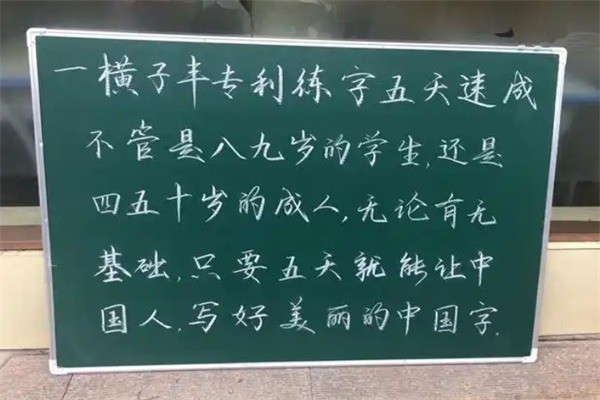 一横子丰专利练字五天速成
不管是八九岁的学生,还是
四五十岁的成人,无论有无
基础,只要五天就能让中
国人,写好美丽的中国字.